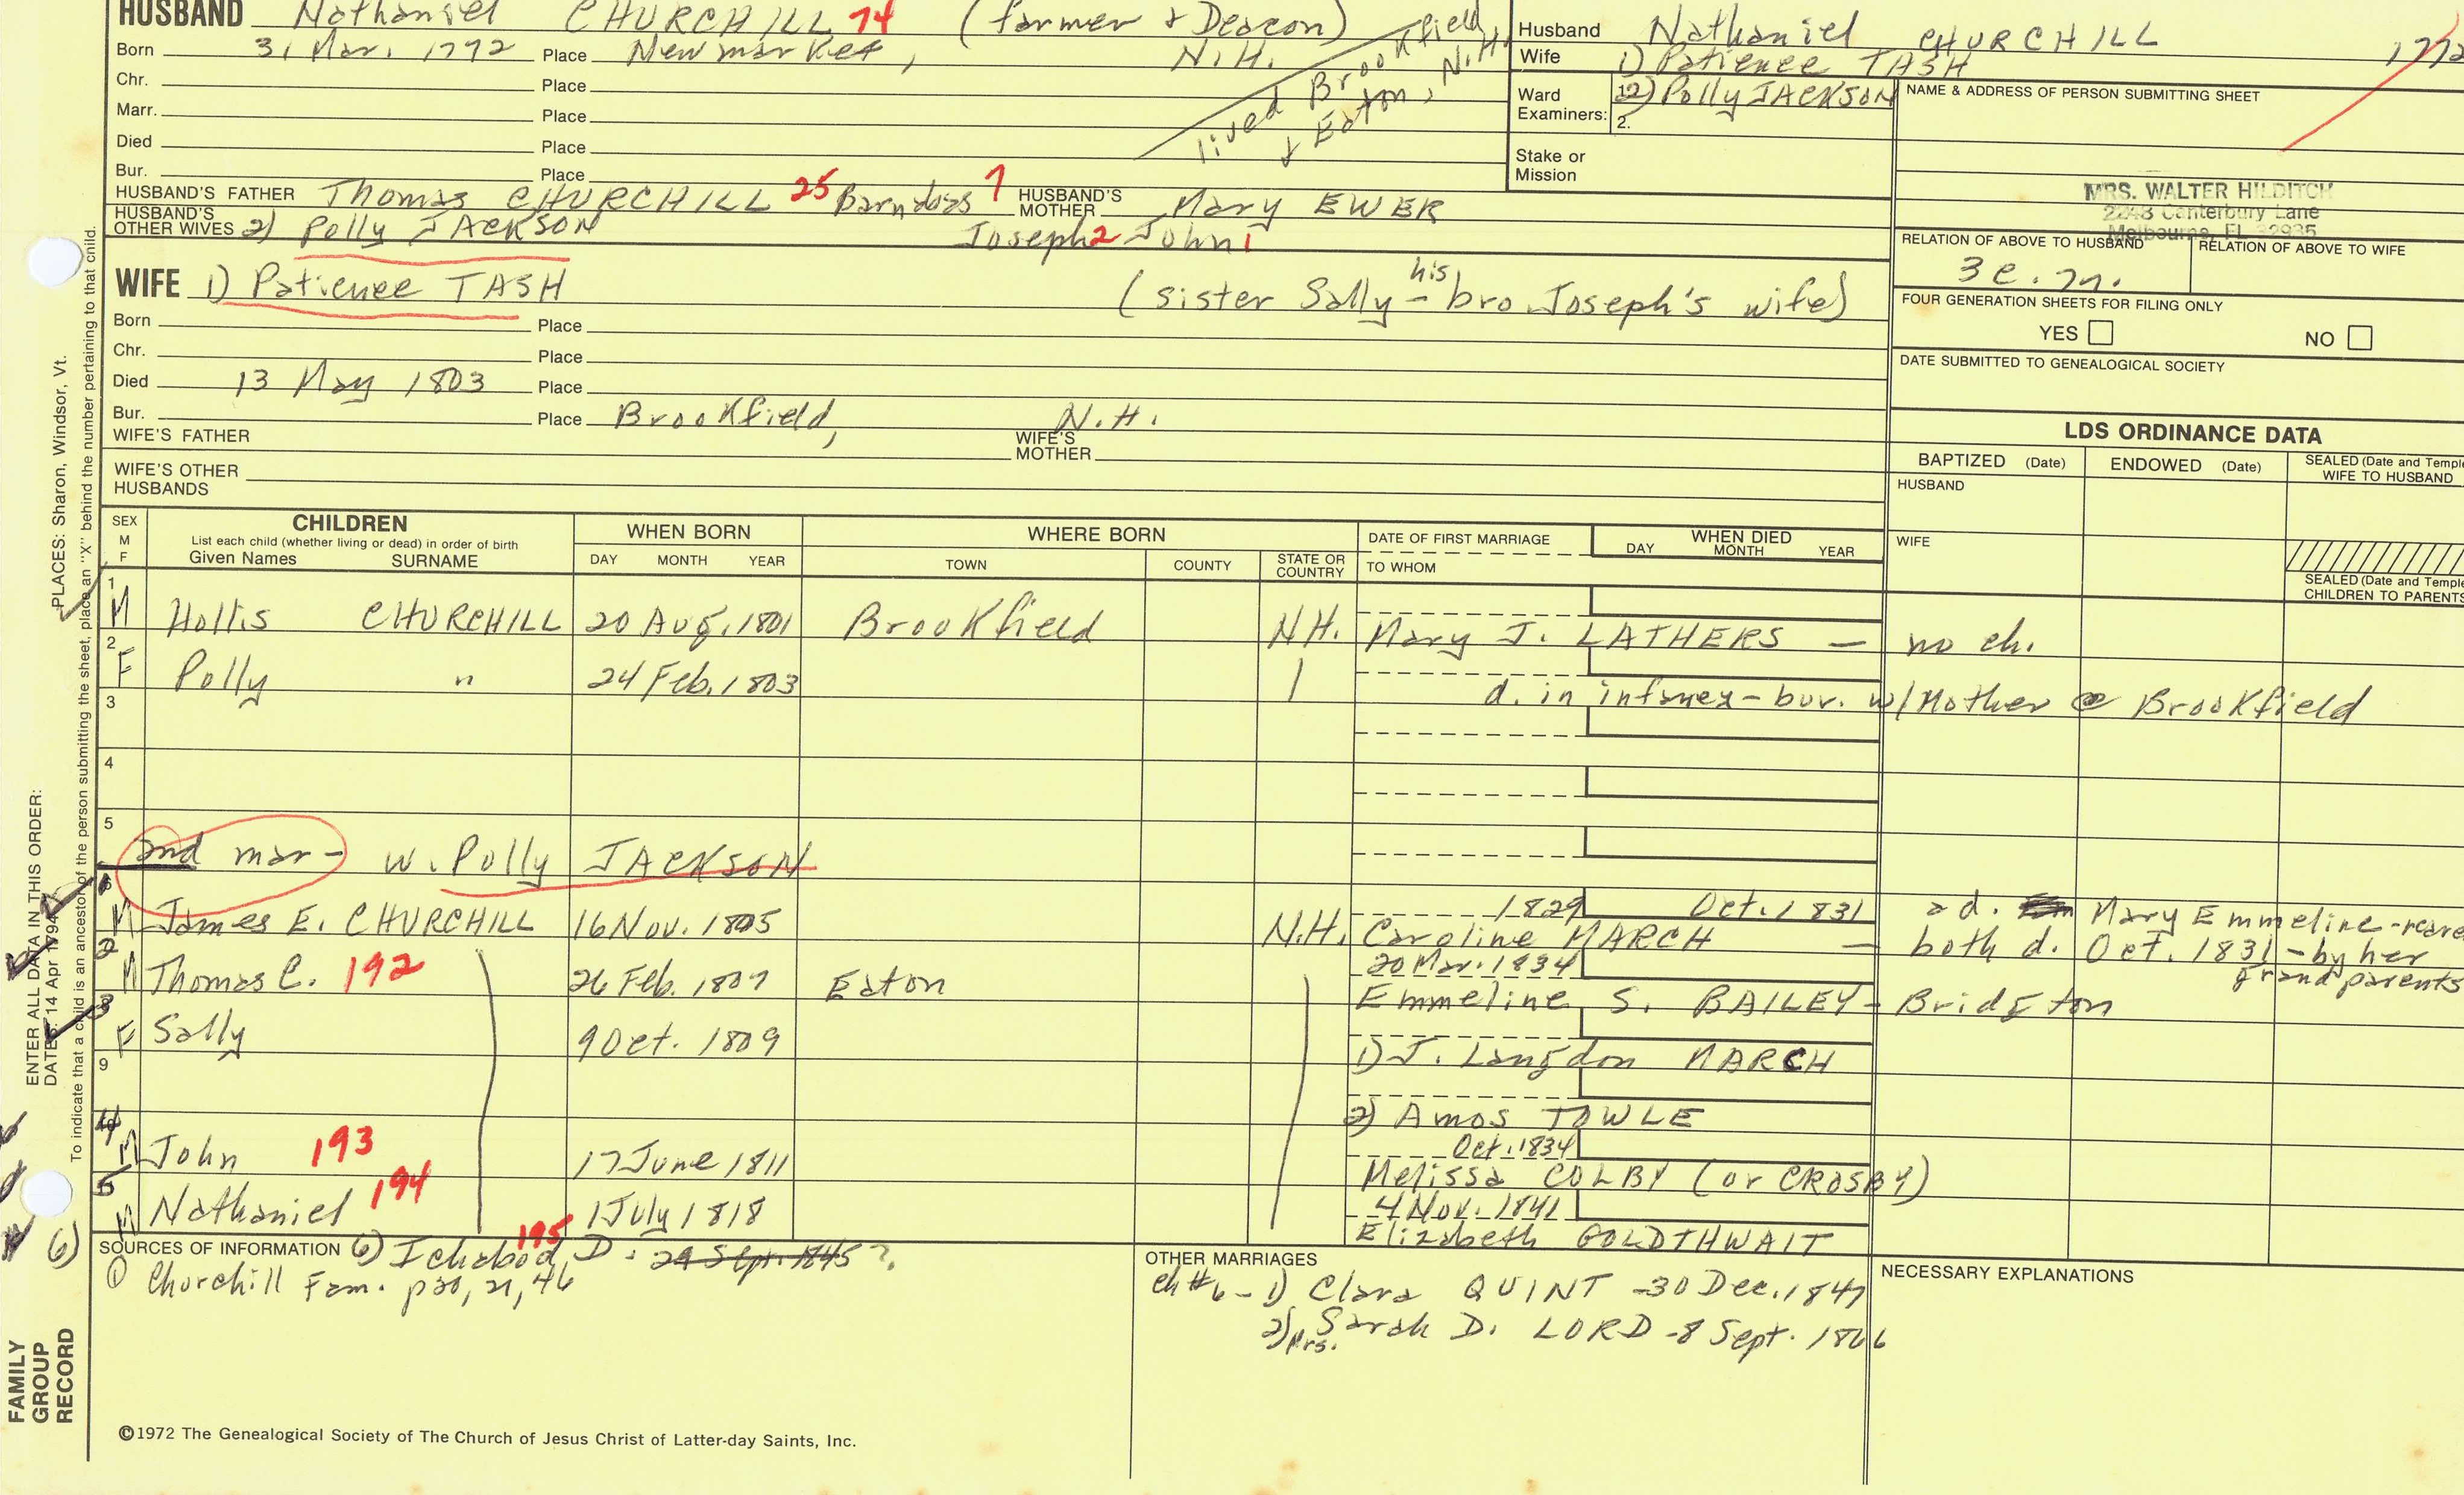 HUSBAND Nathaniel CHURCHILL 74 (farmer & Deacon)
Born 31 Mar. 1772 Place Newmarket, N.H.
Chr. Place
Marr. Place
Died Place
Bur. Place
lived Brookfield
& Eaton, N.H.
HUSBAND'S FATHER Thomas CHURCHILL 25 Barnabas 7 HUSBAND'S MOTHER Mary EWER
HUSBAND'S OTHER WIVES 2) Polly JACKSON Joseph 2 John 1
Husband Nathaniel CHURCHILL 1772
Wife 1) Patience TASH
Ward Examiners: 1. 2) Polly JACKSON
2.
Stake or Mission
NAME & ADDRESS OF PERSON SUBMITTING SHEET
MRS. WALTER HILDITCH
2248 Canterbury Lane
Melbourne, FL 32935
RELATION OF ABOVE TO HUSBAND RELATION OF ABOVE TO WIFE
3 c.
FOUR GENERATION SHEETS FOR FILING ONLY
YES NO
DATE SUBMITTED TO GENEALOGICAL SOCIETY
WIFE 1) Patience TASH (sister Sally - his bro Joseph's wife)
Born Place
Chr. Place
Died 13 May 1803 Place
Bur. Place Brookfield, N.H.
WIFE'S FATHER WIFE'S MOTHER
WIFE'S OTHER HUSBANDS
LDS ORDINANCE DATA
BAPTIZED (Date) ENDOWED (Date) SEALED (Date and Temple) WIFE TO HUSBAND
HUSBAND
WIFE
SEALED (Date and Temple) CHILDREN TO PARENTS
SEX M F
CHILDREN
List each child (whether living or dead) in order of birth
Given Names SURNAME
WHEN BORN
DAY MONTH YEAR
WHERE BORN
TOWN COUNTY STATE OR COUNTRY
DATE OF FIRST MARRIAGE
TO WHOM
WHEN DIED
DAY MONTH YEAR
1 M Hollis CHURCHILL 20 Aug. 1801 Brookfield N.H. Mary J. LATHERS - no ch.
2 F Polly " 24 Feb. 1803 d. in infancy - bur. w/Mother @ Brookfield
3
4
5
2nd mar - w. Polly JACKSON
1 M James E. CHURCHILL 16 Nov. 1805 N.H. 1829 Oct. 1831
Caroline MARCH - both d. Oct. 1831
a d. Mary Emmeline - reared by her grandparents
2 M Thomas C. 192 26 Feb. 1807 Eaton 20 Mar. 1834
Emmeline S. BAILEY - Bridgton
3 F Sally 9 Oct. 1809
1) J. Langdon MARCH
9
2) Amos TOWLE
4 M John 193 17 June 1811 Oct. 1834
Melissa COLBY (or CROSBY)
5 M Nathaniel 194 1 July 1818 4 Nov. 1841
Elizabeth GOLDTHWAIT
6) SOURCES OF INFORMATION 6) Ichabod 195 D. 24 Sept. 1845 ?
① Churchill Fam. p20, 21, 46
OTHER MARRIAGES
ch #6 - 1) Clara QUINT - 30 Dec. 1847
2) Mrs. Sarah D. LORD - 8 Sept. 1866
NECESSARY EXPLANATIONS
ENTER ALL DATA IN THIS ORDER:
DATES: 14 Apr 1794 PLACES: Sharon, Windsor, Vt.
To indicate that a child is an ancestor of the person submitting the sheet, place an "X" behind the number pertaining to that child.
FAMILY GROUP RECORD
©1972 The Genealogical Society of The Church of Jesus Christ of Latter-day Saints, Inc.